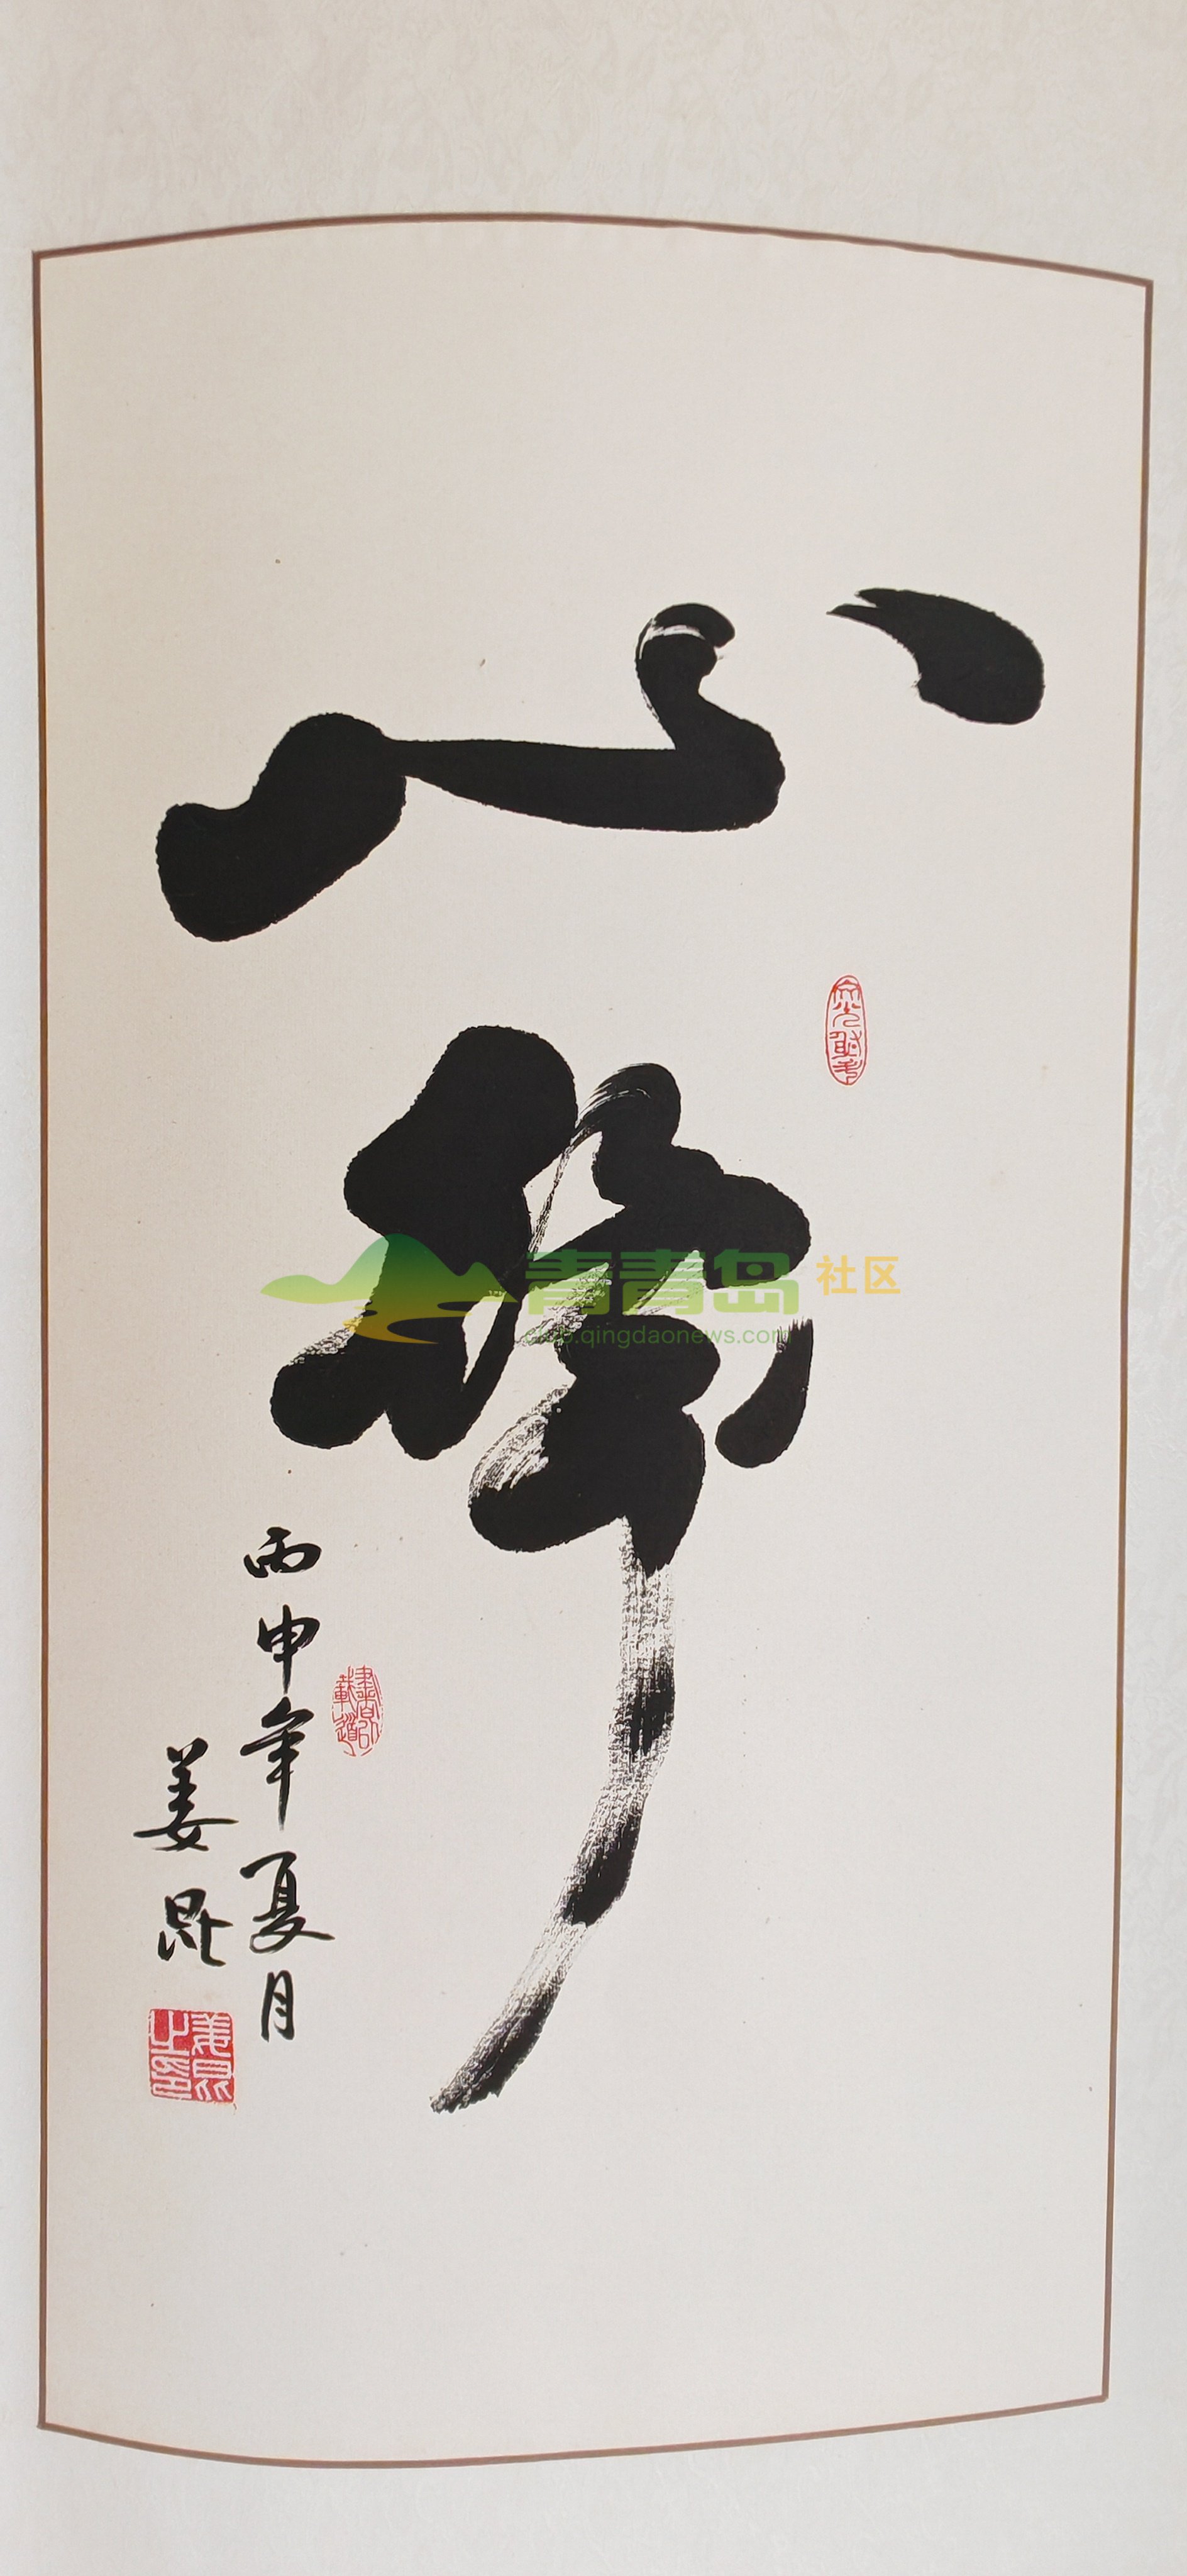 心静
丙申年夏月
姜昆
書以載道
姜昆之印
青青岛社区
club.qingdaonews.com